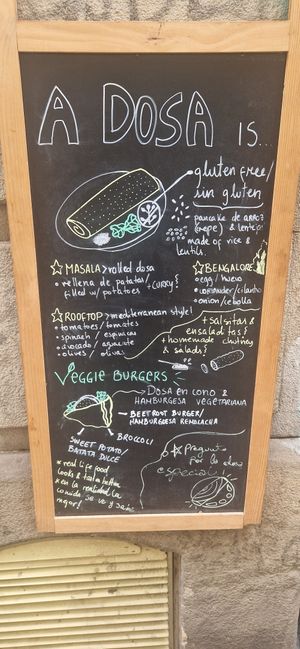 A DOSA IS...
gluten free/
sin gluten
pancake de arroz
(crepe) & lentejas
made of rice &
lentils.
MASALA > rolled dosa
• rellena de patatas/
filled w/ potatoes
+CURRY!
BENGALORE
• egg/huevo
• coriander/cilantro
• onion/cebolla
ROOFTOP > mediterranean style!
• tomatoes/tomates
• spinach/espinacas
• avocado/aguacate
• olives/olivas
+ salsitas &
ensaladitas
+ homemade chutneys
& salads!
VEGGIE BURGERS
DOSA EN CONO &
HAMBURGESA VEGETARIANA
BEETROOT BURGER/
HAMBURGUESA REMOLACHA
BROCCOLI
SWEET POTATO/
BATATA DULCE
* real life food
looks & tastes better
en la realidad la
comida se ve y sabe
mejor!
Pregunta
por la dosa
especial!